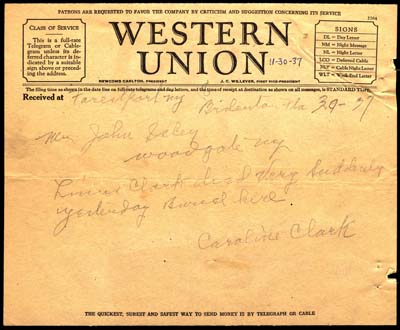 PATRONS ARE REQUESTED TO FAVOR THE COMPANY BY CRITICISM AND SUGGESTION CONCERNING ITS SERVICE
CLASS OF SERVICE
This is a full-rate
Telegram or Cable-
gram unless its de-
ferred character is in-
dicated by a suitable
sign above or preced-
ing the address.
WESTERN
UNION
11-30-37
NEWCOMB CARLTON, PRESIDENT
J. C. WILLEVER, FIRST VICE-PRESIDENT
SIGNS
DL = Day Letter
NM = Night Message
NL = Night Letter
LCO = Deferred Cable
NLT = Cable Night Letter
WLT = Week-End Letter
The filing time as shown in the date line on full-rate telegrams and day letters, and the time of receipt at destination as shown on all messages, is STANDARD TIME.
Received at Forestport ny Fla 30-37
Mrs John
woodgate ny
Clark died very Suddenly
yesterday Burial here
Caroline Clark
THE QUICKEST, SUREST AND SAFEST WAY TO SEND MONEY IS BY TELEGRAPH OR CABLE